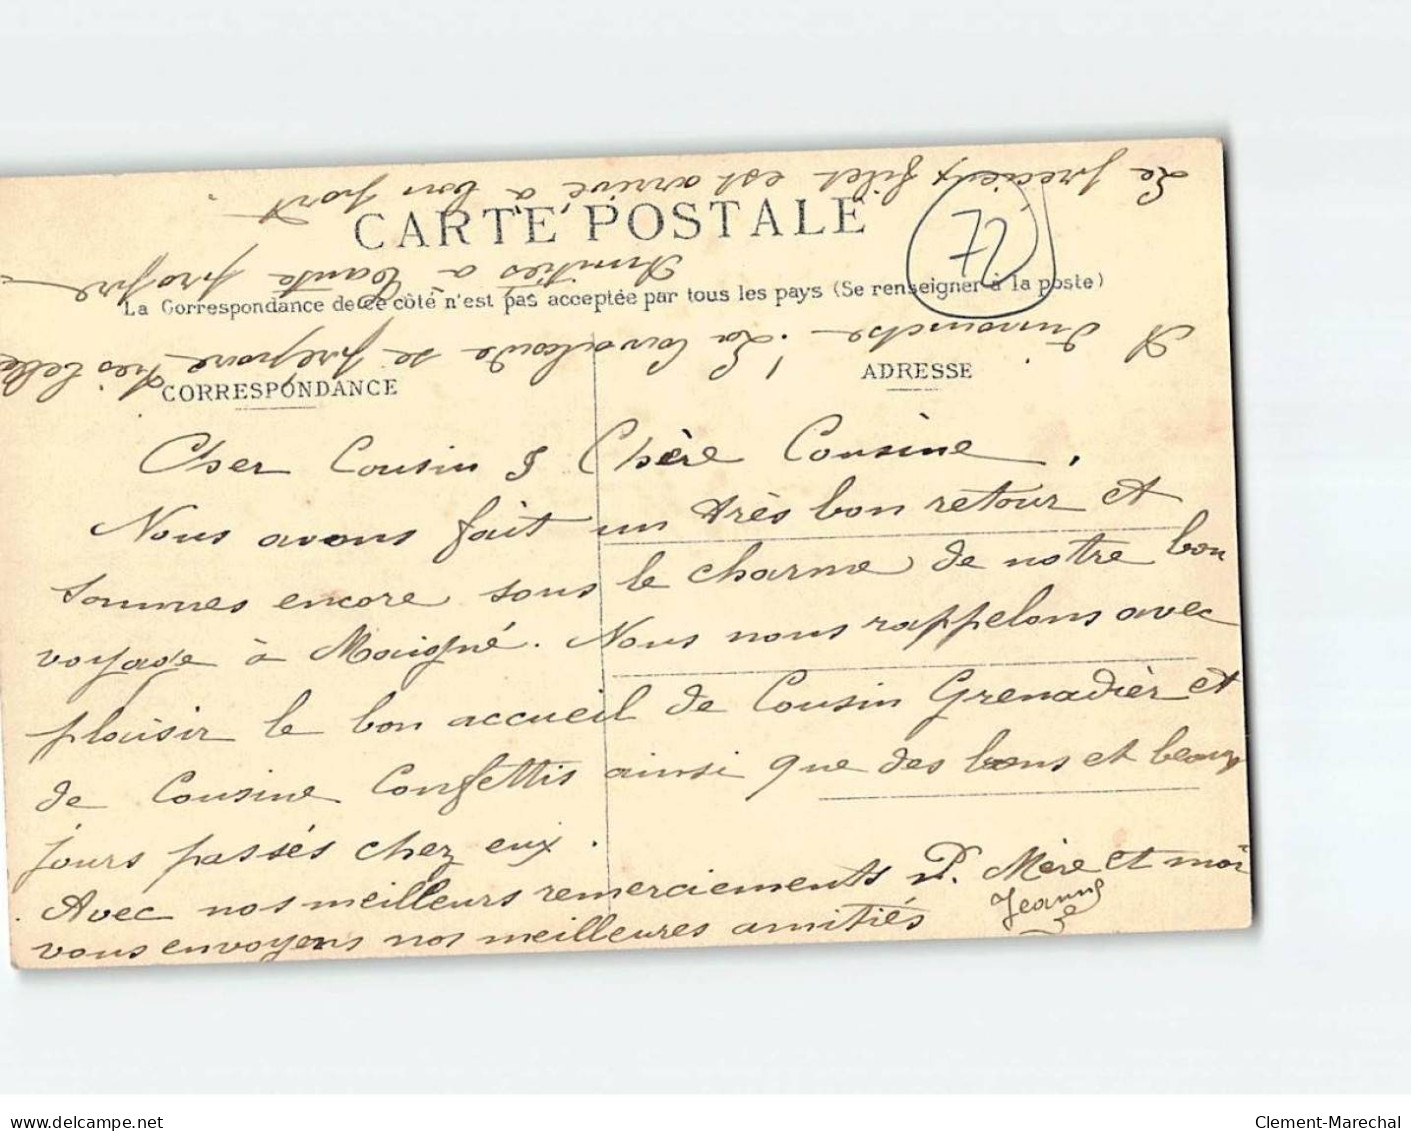 CARTE POSTALE
La Correspondance de ce côté n'est pas acceptée par tous les pays (Se renseigner à la poste)
CORRESPONDANCE
ADRESSE
Cher Cousin & Chère Cousine,
Nous avons fait un très bon retour et
sommes encore sous le charme de notre bon
voyage à Maigné. Nous nous rappelons avec
plaisir le bon accueil de Cousin Grenadier et
de Cousine Confettis ainsi que des bons et beaux
jours passés chez eux.
Avec nos meilleurs remerciements P. Mère et moi
vous envoyons nos meilleures amitiés
Jeanne
A dimanche ! La cavalcade se prépare très belle
Amitiés à Tante propre
Le précieux filet est arrivé à bon port
72
www.delcampe.net
Clement-Marechal